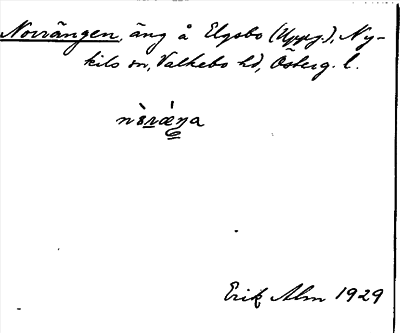 Norrängen, äng å Elgsbo (Uppg.), Ny-
kils sn, Valkebo hd, Österg. l.
Erik Alm 1929